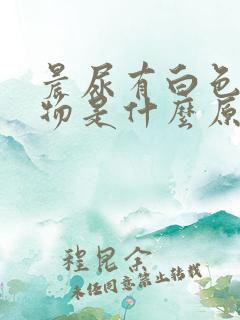 晨尿有白色
物是什麼原
程昆余
未经同意禁止转载